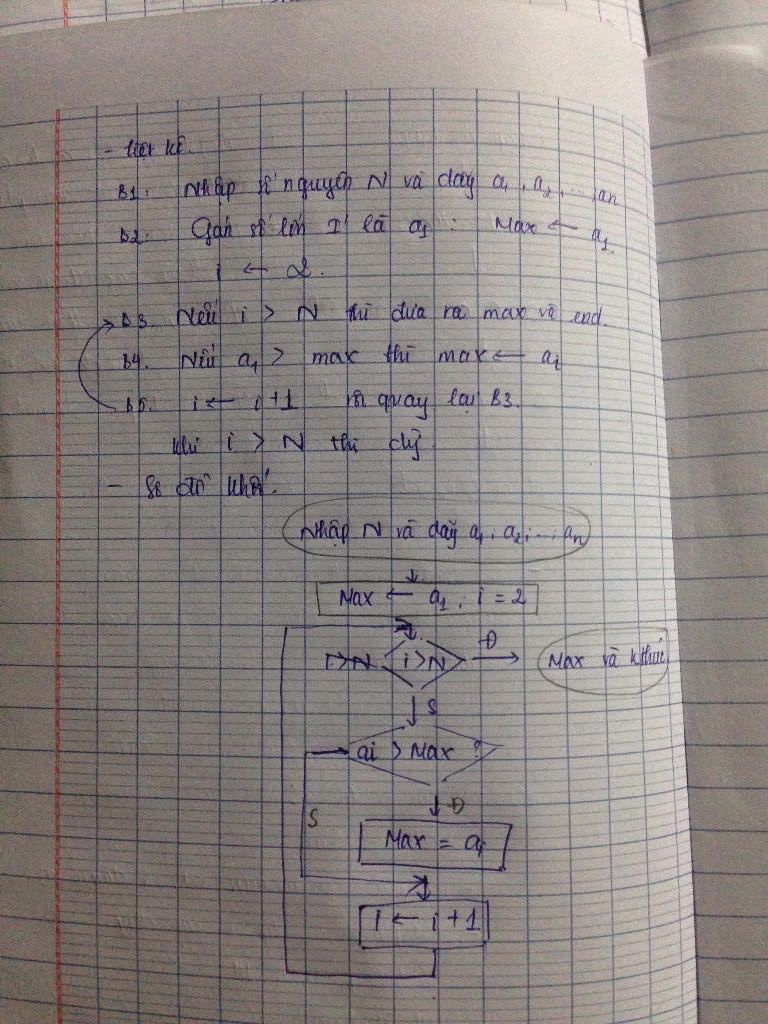 - Liệt kê.
B1. Nhập số nguyên N và dãy a1, a2, ..., an
B2. Gán số lớn I là a1 : Max ← a1.
i ← 2.
B3. Nếu i > N thì đưa ra max và end.
B4. Nếu a1 > max thì max ← ai
B5. i ← i+1 rồi quay lại B3.
khi i > N thì
- Sơ đồ khối.
Nhập N và dãy a1, a2, ..., an
Max ← a1, i = 2
i > N Đ Max và k thúc
S
ai > Max ?
Đ
S
Max = ai
i ← i + 1